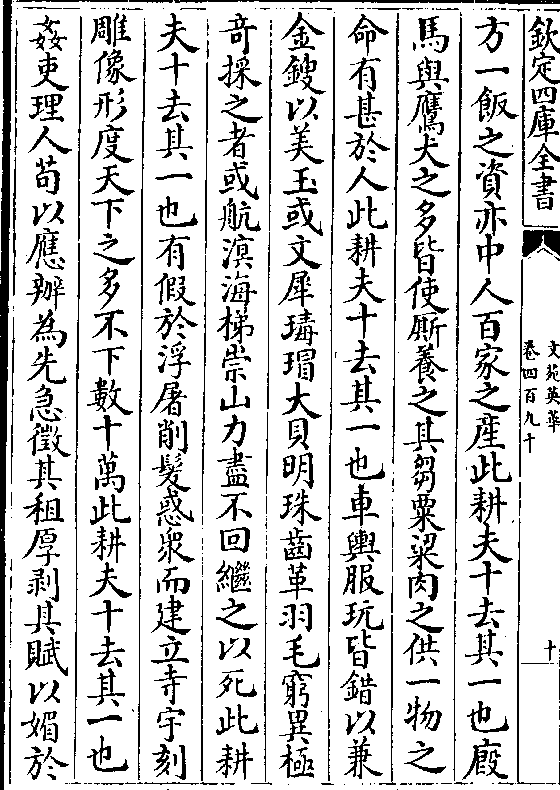 欽定四庫全書
文苑英華
卷四百九十
十
方一飯之資亦中人百家之產此耕夫十去其一也廐
馬與鷹犬之多皆使厮養之其芻粟粱肉之供一物之
命有甚於人此耕夫十去其一也車輿服玩皆錯以兼
金鎪以美玉或文犀瑇瑁大貝明珠齒革羽毛窮異極
竒採之者或航溟海梯崇山力盡不回繼之以死此耕
夫十去其一也有假於浮屠削髮惑衆而建立寺宇刻
雕像形度天下之多不下數十萬此耕夫十去其一也
姦吏理人苟以應辦為先急徵其租厚剥其賦以媚於